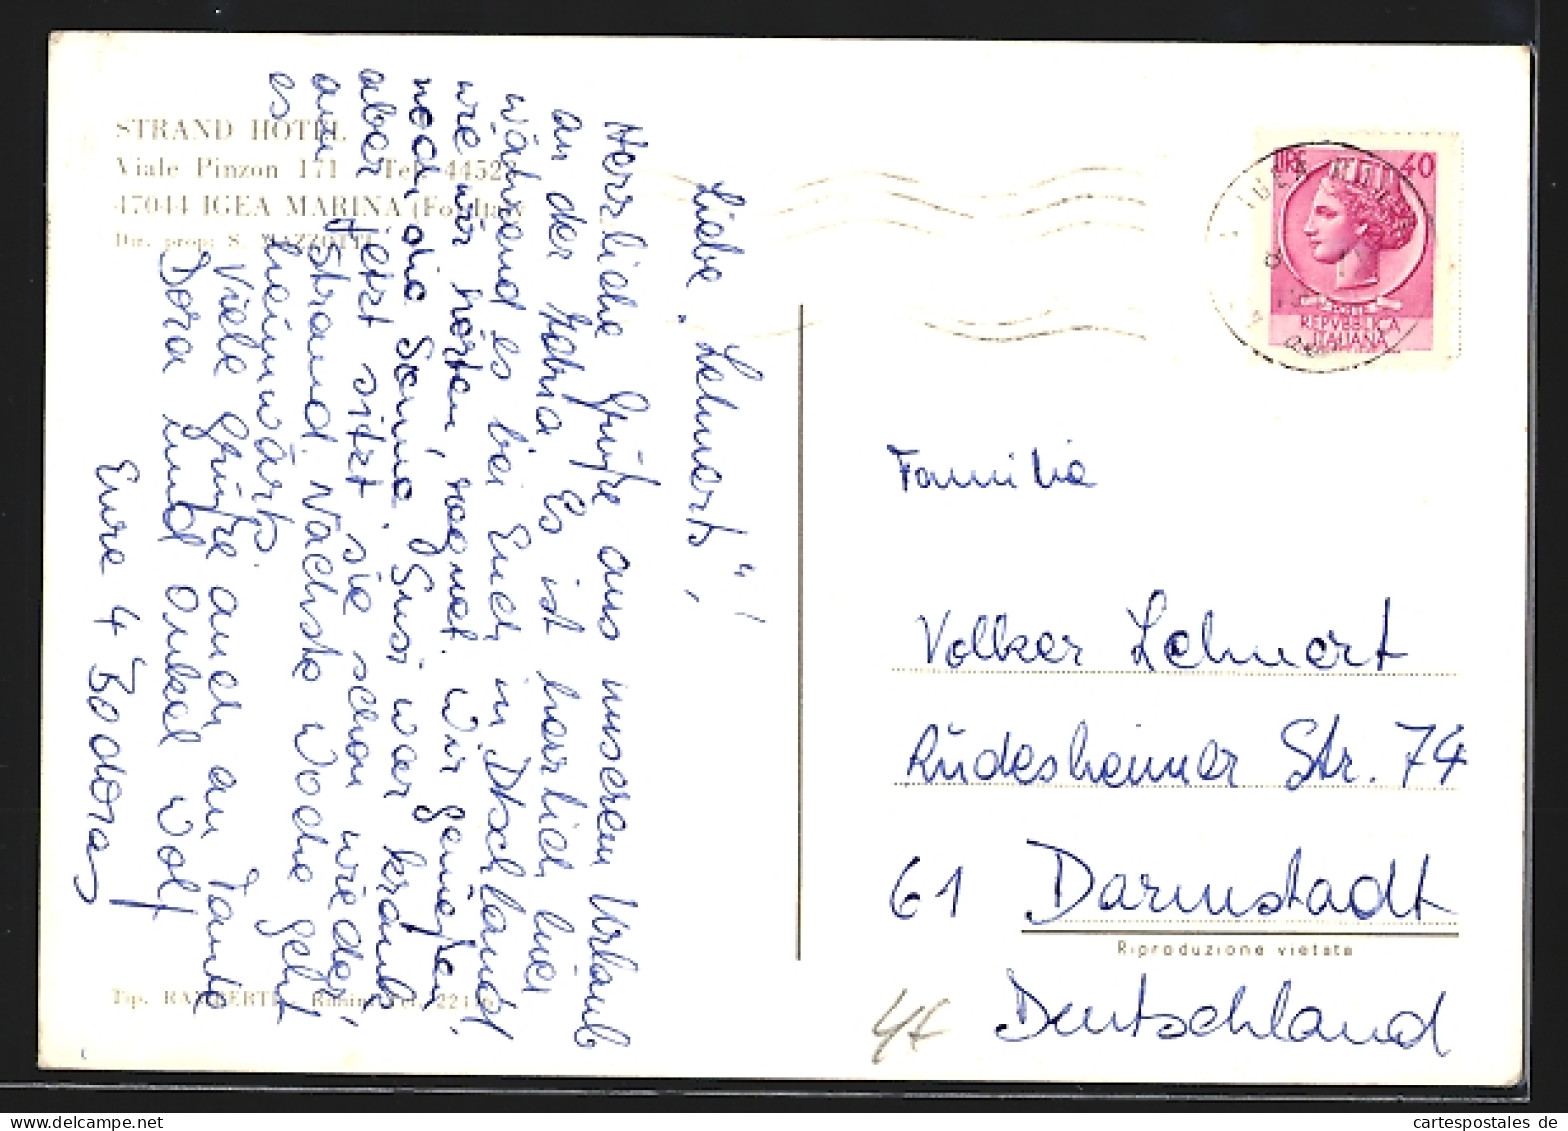 STRAND HOTEL
Viale Pinzon 171 Tel. 4452
47044 IGEA MARINA (Fo) Italy
Dir. prop: S. MAZZOTTI
Liebe „Lehnerts“,
Herrliche Grüße aus unserem Urlaub
an der Adria. Es ist herrlich hier
während es bei Euch in Dtschland,
wie wir hörten, regnet. Wir genießen
noch die Sonne. Susi war krank
aber jetzt sitzt sie schon wieder
am Strand. Nächste Woche geht
es heimwärts.
Viele Grüße auch an Tante
Dora und Onkel Wolf
Eure 4
Tip. RAMBERTI - Rimini
LIRE 40
REPVBBLICA
ITALIANA
Familie
Volker Lehnert
Rüdesheimer Str. 74
61 Darmstadt
Riproduzione vietata
Deutschland
cartespostales de